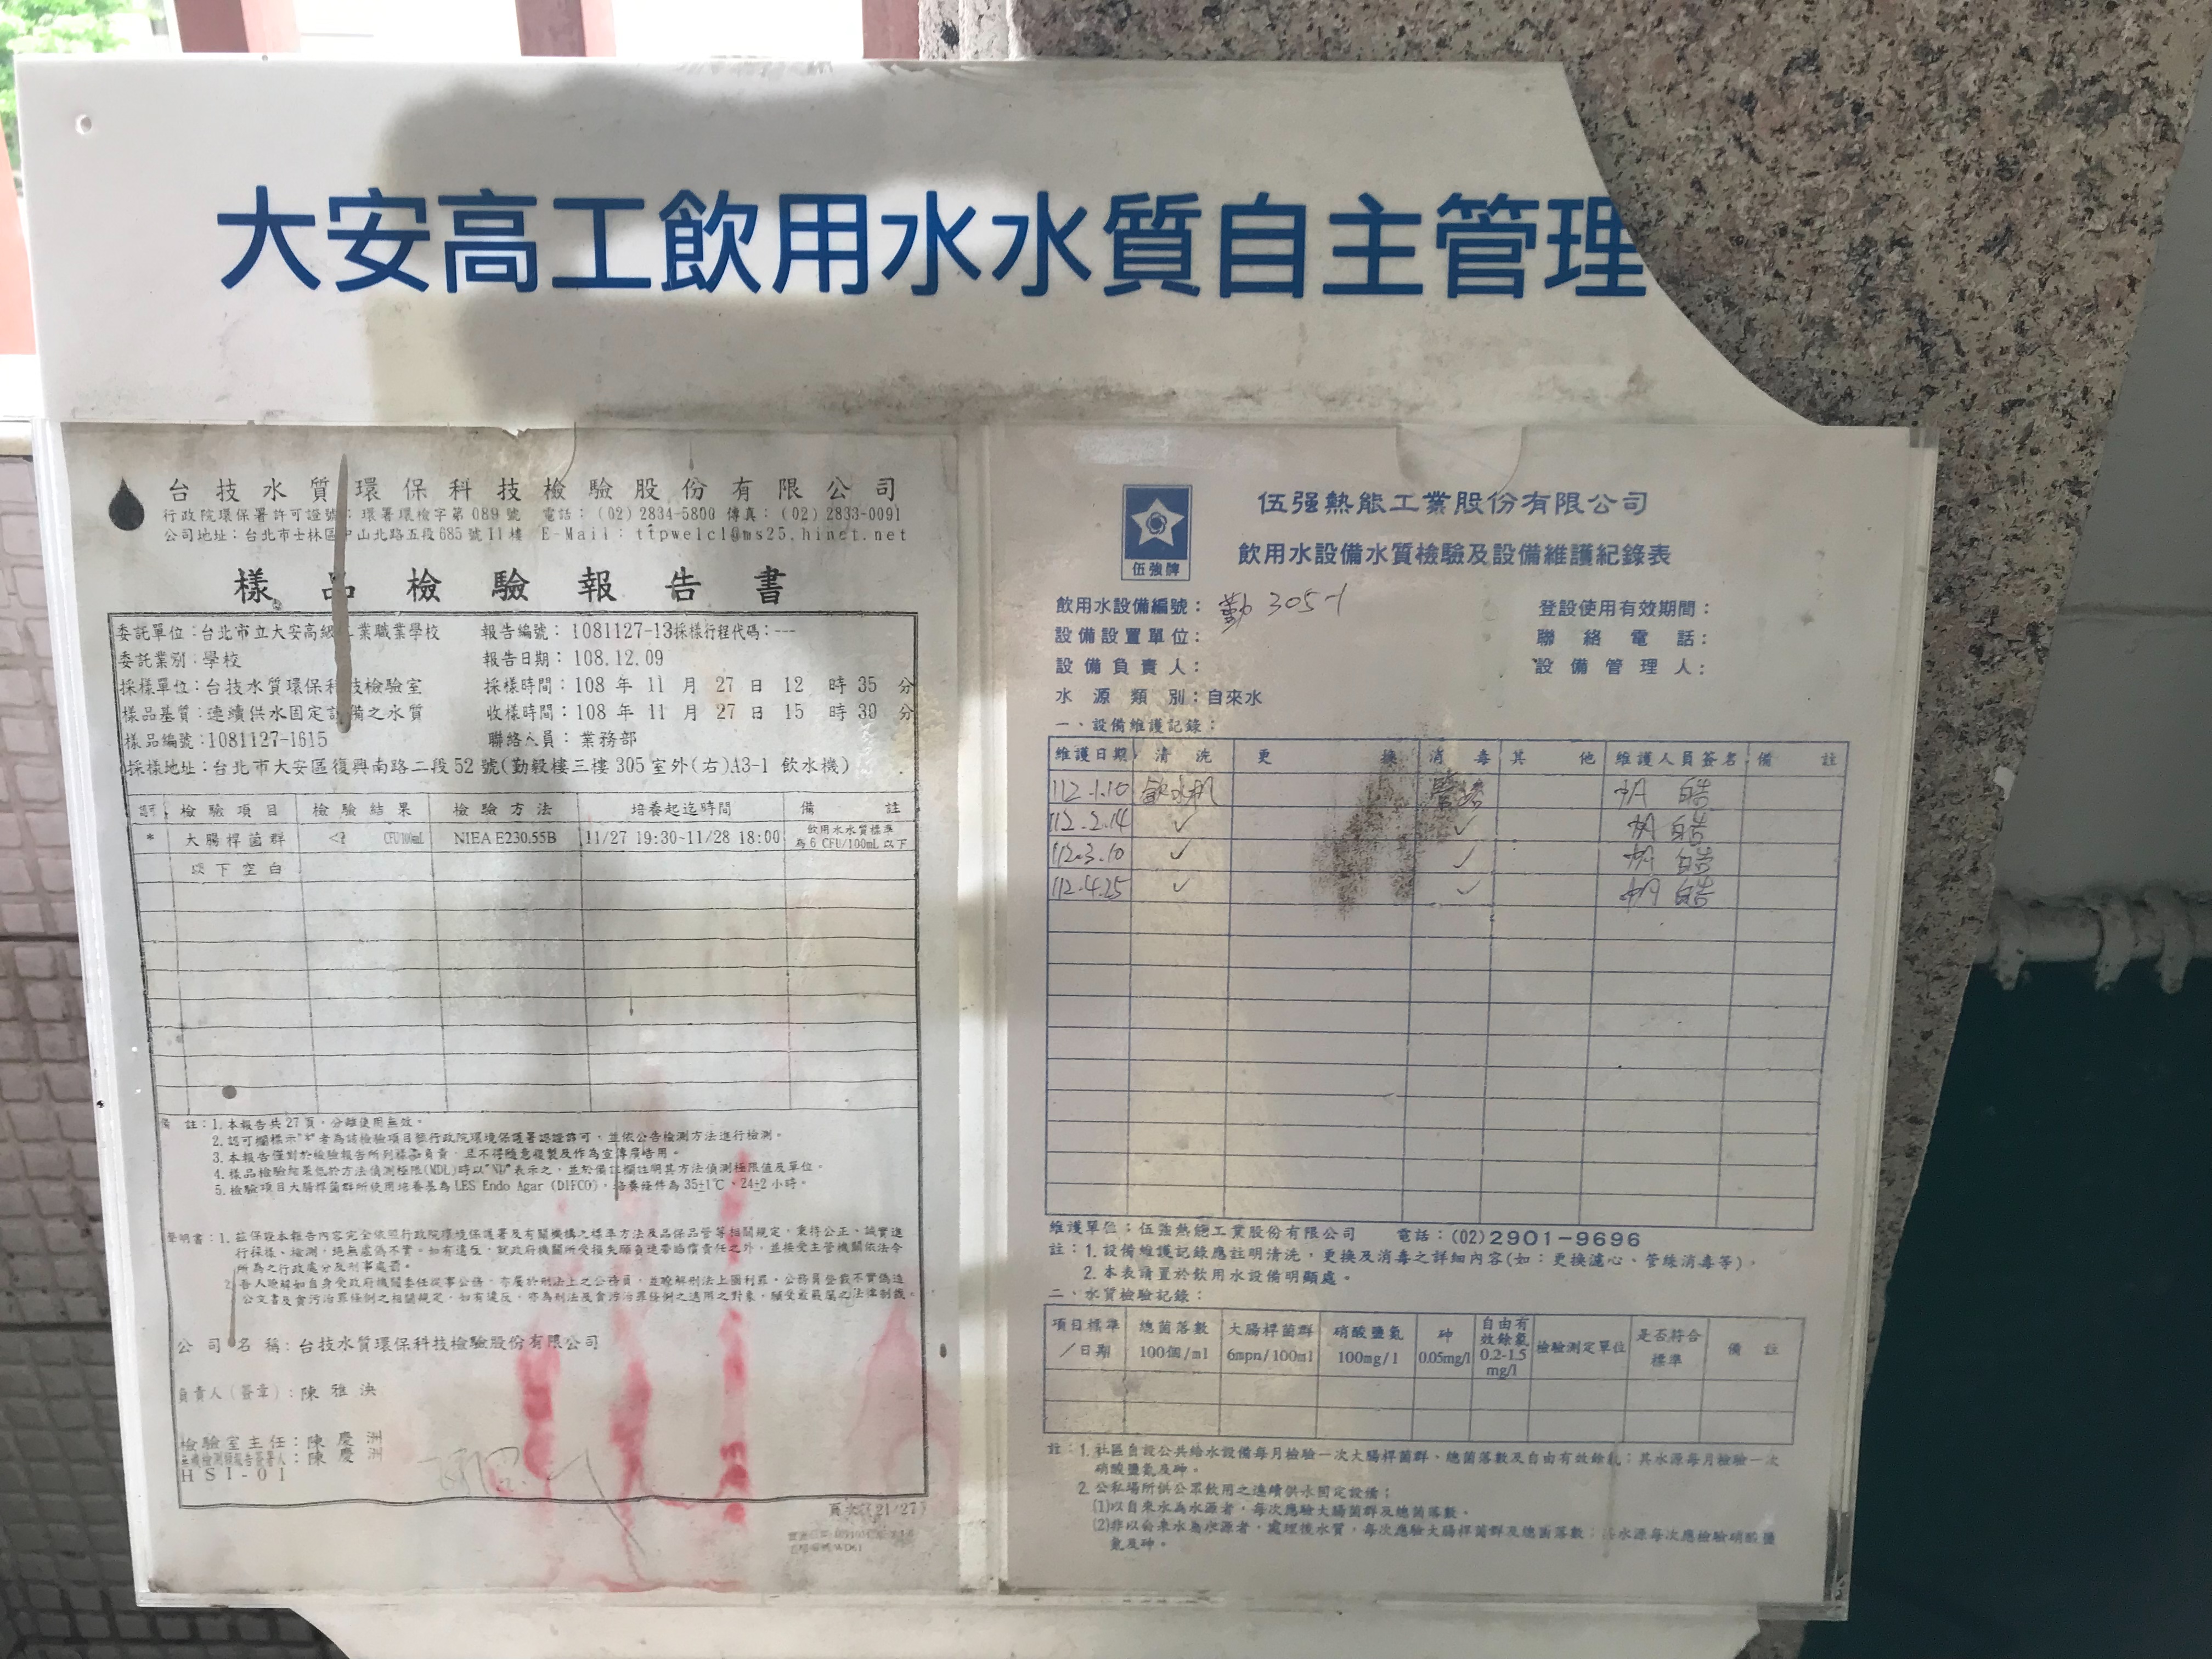 大安高工飲用水水質自主管理
台技水質環保科技檢驗股份有限公司
行政院環保署許可證號：環署環檢字第089號 電話：(02)2834-5800 傳真：(02)2833-0091
公司地址：台北市士林區中山北路五段685號11樓 E-Mail：ttpwelcl@ms25.hinet.net
樣品檢驗報告書
委託單位：台北市立大安高級工業職業學校 報告編號：1081127-13採樣行程代碼：---
委託業別：學校 報告日期：108.12.09
採樣單位：台技水質環保科技檢驗室 採樣時間：108 年 11 月 27 日 12 時 35 分
樣品基質：連續供水固定設備之水質 收樣時間：108 年 11 月 27 日 15 時 30 分
樣品編號：1081127-1615 聯絡人員：業務部
採樣地址：台北市大安區復興南路二段52號(勤毅樓三樓305室外(右)A3-1 飲水機)
檢驗項目 檢驗結果 檢驗方法 培養起迄時間 備註
* 大腸桿菌群 CFU/100mL NIEA E230.55B 11/27 19:30~11/28 18:00 飲用水水質標準
為 6 CFU/100mL 以下
以下空白
備註：1.本報告共27頁，分離使用無效。
2.認可欄標示"*"者為該檢驗項目經行政院環境保護署認證許可，並依公告檢測方法進行檢測。
3.本報告僅對於檢驗報告所列樣品負責，且不得隨意複製及作為宣傳廣告用。
4.樣品檢驗結果低於方法偵測極限(MDL)時以"ND"表示之，並於備註欄註明其方法偵測極限值及單位。
5.檢驗項目大腸桿菌群所使用培養基為 LES Endo Agar (DIFCO)，培養條件為35±1℃、24±2小時。
聲明書：1.茲保證本報告內容完全依照行政院環境保護署及有關機構之標準方法及品保品管等相關規定，秉持公正、誠實進
行採樣、檢測，絕無虛偽不實。如有違反，就政府機關所受損失願負連帶賠償責任之外，並接受主管機關依法令
所為之行政處分及刑事處罰。
2.吾人瞭解如自身受政府機關委任從事公務，亦屬於刑法上之公務員，並瞭解刑法上圖利罪、公務員登載不實偽造
公文書及貪污治罪條例之相關規定，如有違反，亦為刑法及貪污治罪條例之適用之對象，願受最嚴厲之法律制裁。
公司名稱：台技水質環保科技檢驗股份有限公司
負責人(簽章)：陳雅泱
檢驗室主任：陳慶洲
無機檢測類報告簽署人：陳慶洲
HSI-01
頁次(21/27)
伍強牌
伍强熱能工業股份有限公司
飲用水設備水質檢驗及設備維護紀錄表
飲用水設備編號：勤305-1 登設使用有效期間：
設備設置單位： 聯絡電話：
設備負責人： 設備管理人：
水源類別：自來水
一、設備維護記錄：
維護日期 清洗 更換 消毒 其他 維護人員簽名 備註
112.1.10 飲水机
112.2.14 ✓ ✓
112.3.10 ✓ ✓
112.4.25 ✓ ✓
維護單位：伍強熱能工業股份有限公司 電話：(02)2901-9696
註：1.設備維護記錄應註明清洗，更換及消毒之詳細內容(如：更換濾心、管線消毒等)。
2.本表請置於飲用水設備明顯處。
二、水質檢驗記錄：
項目標準／日期 總菌落數 100個/ml 大腸桿菌群 6mpn/100ml 硝酸鹽氮 100mg/l 砷 0.05mg/l 自由有效餘氯 0.2-1.5 mg/l 檢驗測定單位 是否符合標準 備註
註：1.社區自設公共給水設備每月檢驗一次大腸桿菌群、總菌落數及自由有效餘氯；其水源每月檢驗一次
硝酸鹽氮及砷。
2.公私場所供公眾飲用之連續供水固定設備：
(1)以自來水為水源者，每次應驗大腸菌群及總菌落數。
(2)非以自來水為水源者，處理後水質，每次應驗大腸桿菌群及總菌落數；其水源每次應檢驗硝酸鹽
氮及砷。